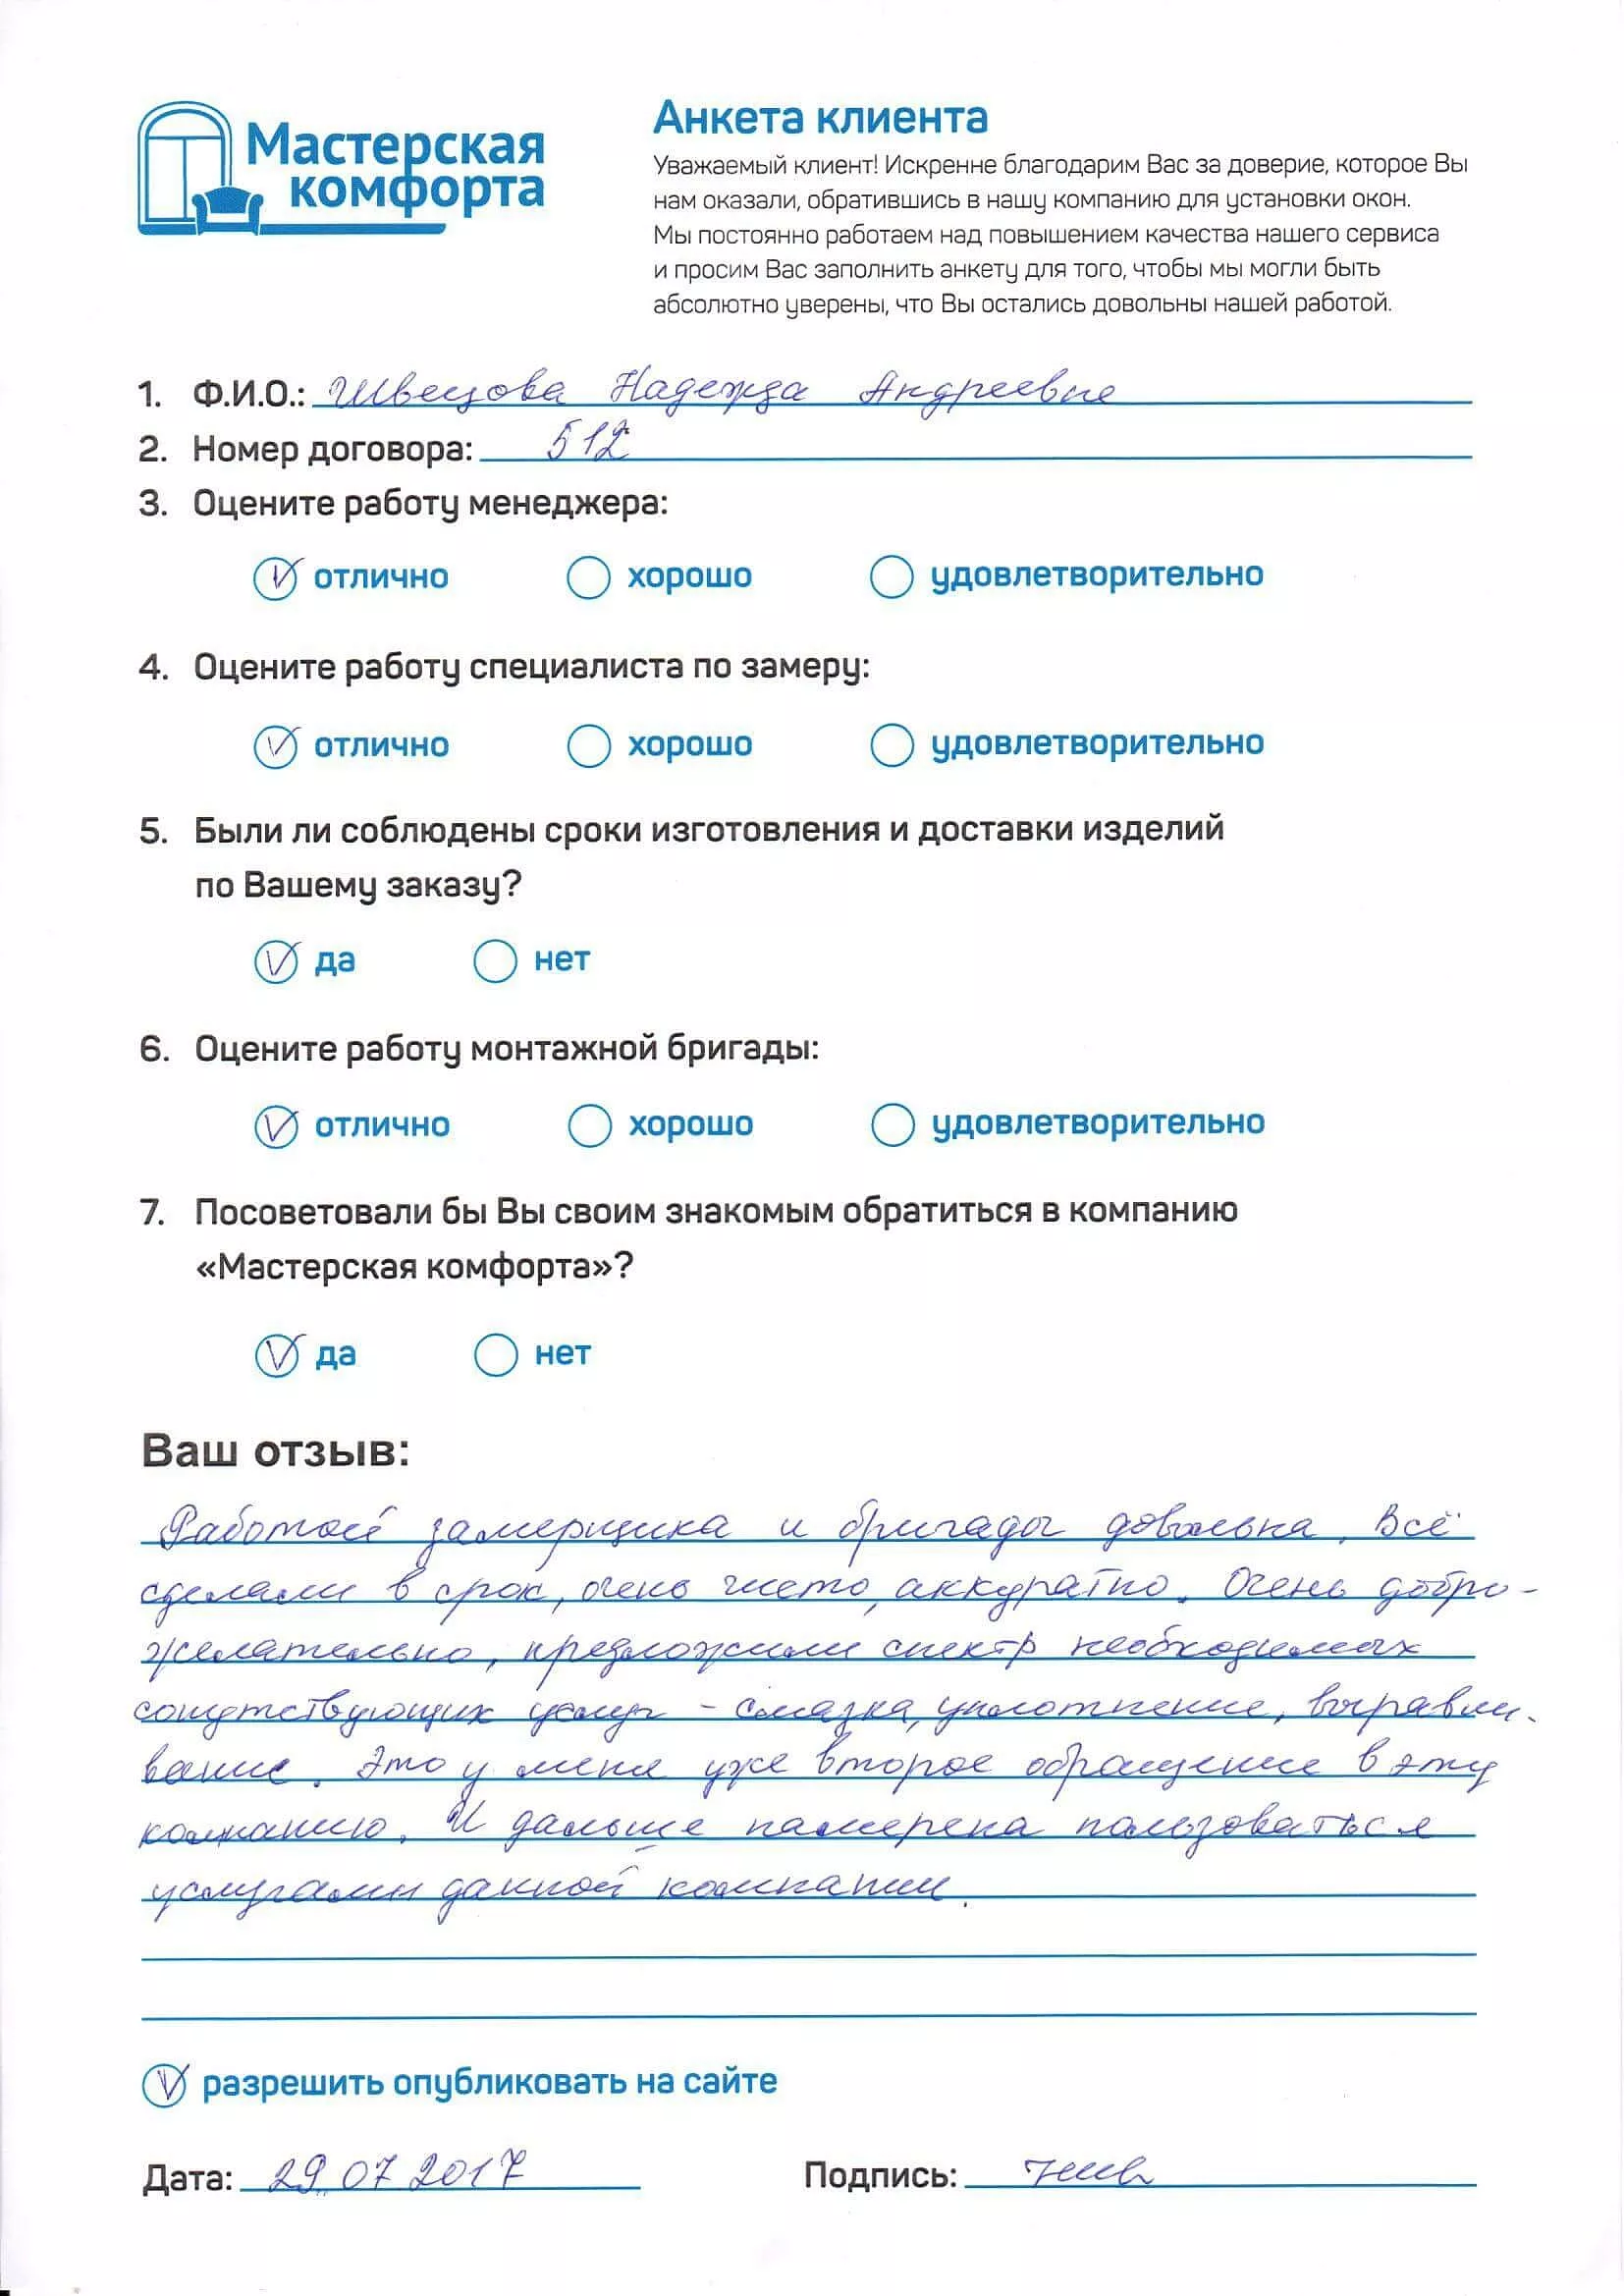 Мастерская
комфорта
Анкета клиента
Уважаемый клиент! Искренне благодарим Вас за доверие, которое Вы
нам оказали, обратившись в нашу компанию для установки окон.
Мы постоянно работаем над повышением качества нашего сервиса
и просим Вас заполнить анкету для того, чтобы мы могли быть
абсолютно уверены, что Вы остались довольны нашей работой.
1. Ф.И.О.: Швецова Надежда Андреевна
2. Номер договора: 512
3. Оцените работу менеджера:
отлично хорошо удовлетворительно
4. Оцените работу специалиста по замеру:
отлично хорошо удовлетворительно
5. Были ли соблюдены сроки изготовления и доставки изделий
по Вашему заказу?
да нет
6. Оцените работу монтажной бригады:
отлично хорошо удовлетворительно
7. Посоветовали бы Вы своим знакомым обратиться в компанию
«Мастерская комфорта»?
да нет
Ваш отзыв:
Работой замерщика и бригады довольна. Всё
сделали в срок, очень чисто, аккуратно. Очень добро-
желательно, предложили спектр необходимых
сопутствующих услуг - смазка, уплотнение, выравни-
вание. Это у меня уже второе обращение в эту
компанию. И дальше намерена пользоваться
услугами данной компании.
разрешить опубликовать на сайте
Дата: 29.07 2017 Подпись: